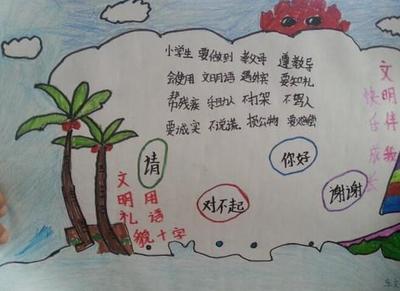 小学生 要做到 敬父母 遵教导
会使用 文明语 遇外宾 要知礼
帮残疾 不打架 不骂人
要诚实 不说谎 损公物 要赔偿
文明伴我
快乐成长
请
你好
对不起
谢谢
文明礼貌
用语十字